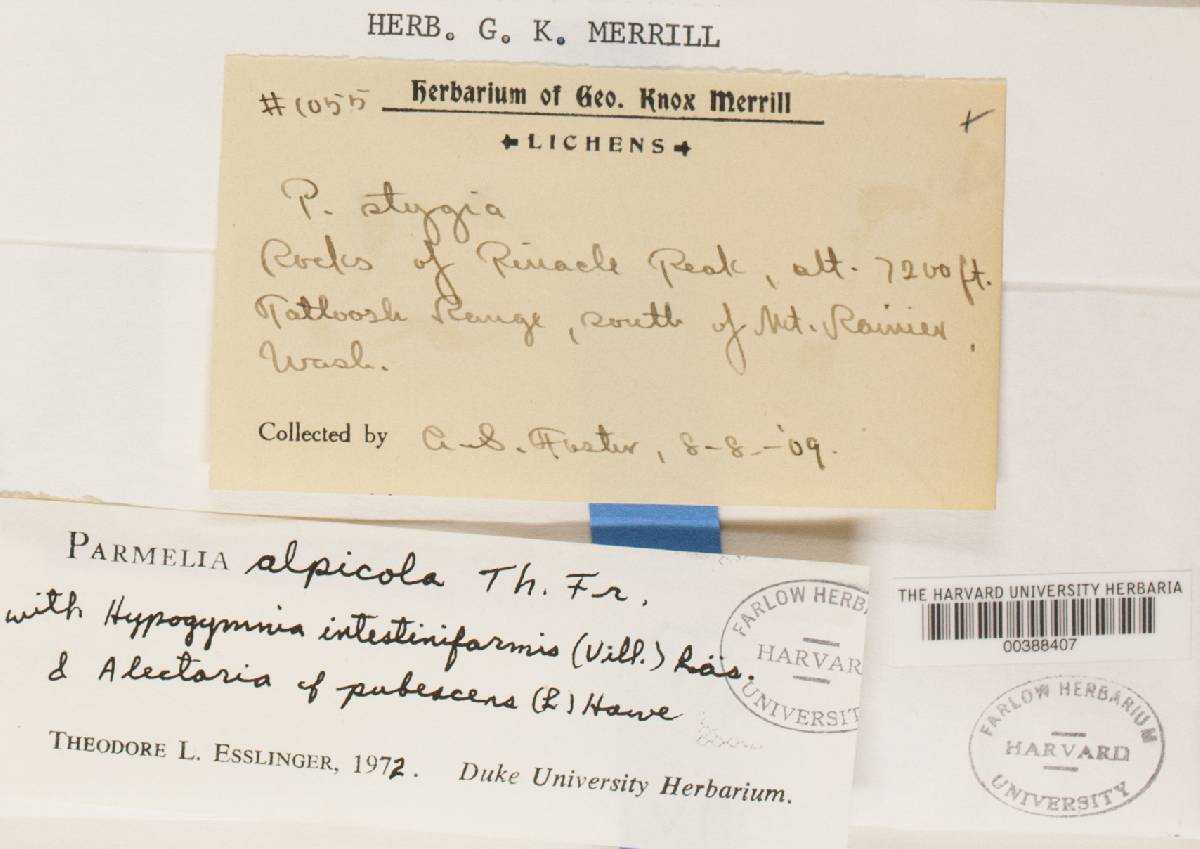 HERB. G. K. MERRILL
#1055 Herbarium of Geo. Knox Merrill
LICHENS
P. stygia
Rocks of Pinacle Peak, alt. 7200 ft.
Tatoosh Range, south of Mt. Rainier,
Wash.
Collected by A. S. Foster, 8-8-'09.
PARMELIA alpicola Th. Fr.
with Hypogymnia intestiniformis (Vill.) Räs.
& Alectoria cf pubescens (L) Howe
THEODORE L. ESSLINGER, 1972. Duke University Herbarium.
FARLOW HERB
HARVAR
UNIVERSIT
THE HARVARD UNIVERSITY HERBARIA
00388407
FARLOW HERBARIUM
HARVARD
UNIVERSITY